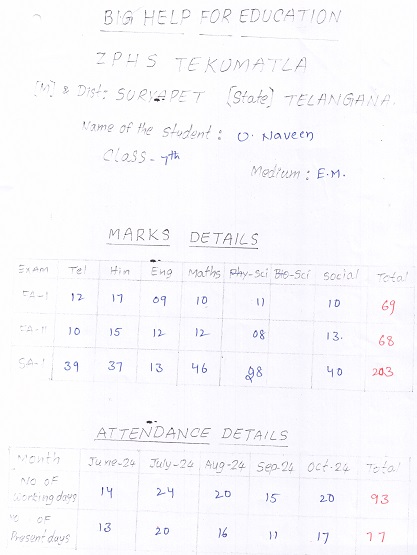 BIG HELP FOR EDUCATION
ZPHS TEKUMATLA
[M] & Dist: SURYAPET [State] TELANGANA.
Name of the Student : O. Naveen
Class - 7th
Medium : E.M.
MARKS DETAILS
Exam Tel Hin Eng Maths Phy-Sci Bio-Sci Social Total
FA-I 12 17 09 10 11 10 69
FA-II 10 15 12 12 08 13. 68
SA-I 39 37 13 46 28 40 203
ATTENDANCE DETAILS
Month June-24 July-24 Aug-24 Sep-24 Oct-24 Total
No of Working days 14 24 20 15 20 93
of Present days 13 20 16 11 17 77